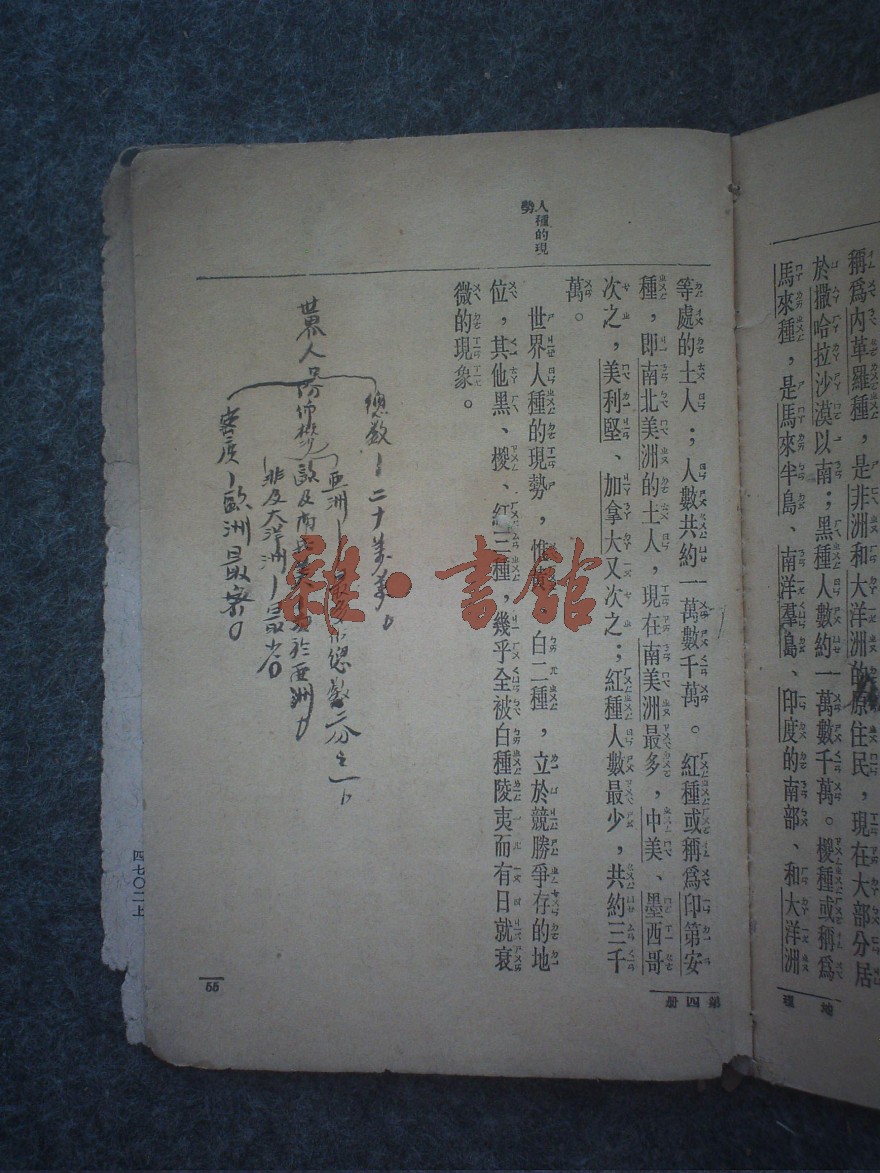 稱爲內革羅種，是非洲和大洋洲的原住民，現在大部分居
於撒哈拉沙漠以南；黑種人數約一萬數千萬。椶種或稱爲
馬來種，是馬來半島、南洋羣島、印度的南部、和大洋洲
地理
人種的現
勢
等處的土人；人數共約一萬數千萬。紅種或稱爲印第安
種，卽南北美洲的土人，現在南美洲最多，中美、墨西哥
次之，美利堅、加拿大又次之；紅種人數最少，共約三千
萬。
世界人種的現勢，惟黃、白二種，立於競勝爭存的地
位，其他黑、椶、紅三種，幾乎全被白種陵夷而有日就衰
微的現象。
第四册
55
總数
二十萬萬
亞洲
總數二分之一
歐及南北美
於亞洲
非及大洋洲 最省
世界人
密度 歐洲最密
雜·書館
四七〇二上